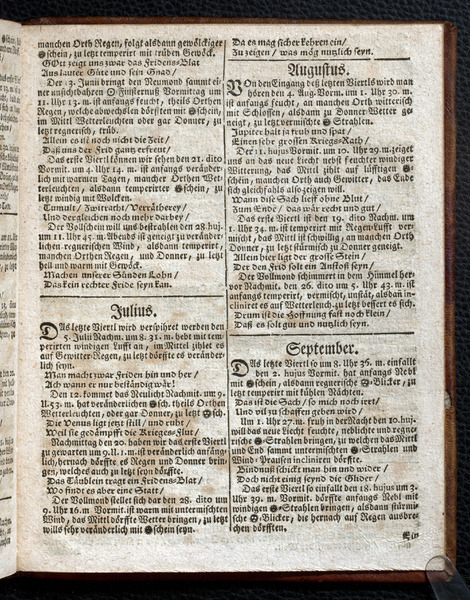 manchen Orth Regen, folgt alsdann gewölckiger
schein, zu letzt temperirt mit trüben Gewölck.
GOtt zeigt uns zwar das Fridens-Blat
Aus lauter Güte und sein Gnad/
Der 13. Junii bringt den Neumond sammt einer
unsichtbahren Finsternuß Vormittag um
11. Uhr 13. m. ist anfangs feucht, theils Orthen
Regen, welche abwechslen dörfften mit schein,
im Mittl Wetterleuchten oder gar Donner, zu
letzt regnerisch, trüb.
Allein es ist noch nicht die Zeit/
Daß uns der Frid gantz erfreut/
Das erste Viertl können wir sehen den 21. dito
Vormit. um 4. Uhr 14. m. ist anfangs verände-
lich mit warmen Tagen, mancher Orthen Wet-
terleuchten, alsdann temperirter schein, zu
letzt windig mit Wolcken.
Tumult/ Zwitracht/ Verrätherey/
Und dergleichen noch mehr darbey/
Der Vollschein will uns bestrahlen den 28. huj.
um 11. Uhr 45. m. Abends ist geneigt zu veränder-
lichen regnerischen Wind, alsdann temperirt,
manchen Orthen Regen, und Donner, zu letzt
hell und warm mit Gewölck.
Machen unserer Sünden Lohn/
Das kein rechter Fride seyn kan.
Julius.
DAs letzte Viertl wird verspühret werden den
5. Julii Nachm. um 8. 31. m. hebt mit tem-
perirten windigen Lufft an, im Mittel zihlet es
auf Gewitter-Regen, zu letzt dörffte es veränder-
lich seyn.
Man macht zwar Friden hin und her/
Ach wann er nur beständig wär!
Den 12. kommet das Neulicht Nachmit. um 9.
U. 53. m. hat veränderlichen sch. theils Orthen
Wetterleuchten, oder gar Donner, zu letzt sch.
Die Venus ligt jetzt still/ und ruht/
Weil sie gedämpfft die Krieges-Flut/
Nachmittag den 20. haben wir das erste Viertl
zu gewarten um 9. U. 1. m. ist veränderlich anfäng-
lich, hernach dörffte es Regen und Donner brin-
gen, welches auch zu letzt seyn dörffte.
Das Täublein tragt ein Fridens-Blat/
Wo findt es aber eine Statt/
Der Vollmond stellet sich dar den 28. dito um
9. Uhr 16. m. Vormit. ist warm mit untermischten
Wind, das Mittl dörffte Wetter bringen, zu letzt
wills sehr veränderlich mit schein seyn.
Da es mag sicher kehren ein/
Zu zeigen/ was mög nutzlich seyn.
Augustus.
VOn den Eingang deß letzten Viertls wird man
hören den 4. Aug. Vorm. um 1. Uhr 30. m.
ist anfangs feucht, an manchen Orth witterisch
mit Schlossen, alsdann zu Donner-Wetter ge-
neigt, zu letzt vermischte Strahlen.
Jupiter halt ja trub und spat/
Einen sehr grossen Kriegs-Rath/
Der 11. hujus Vormit. um 10. Uhr 29. m. zeiget
uns an das neue Liecht nebst feuchter windiger
Witterung, das Mitl zihlt auf lüfftigen
schein, manchen Orth auch Gewitter, das Ende
sich gleichfals also zeigen will.
Wann dise Sach lieff ohne Blut/
Zum Ende/ das wär recht und gut/
Das erste Viertl ist den 19. dito Nachm. um
1. Uhr 34. m. ist temperirt mit Regen-Lufft ver-
mischt, das Mittl ist schwillig, an manchen Orth
Donner, zu letzt stürmisch zu Donner geneigt.
Allein hier ligt der grosse Stein/
Der den Frid solt ein Anstoß seyn/
Der Vollmond schimmert in dem Himmel her-
vor Nachmit. den 26. dito um 5. Uhr 43. m. ist
anfangs temperirt, vermischt, unstät, alsdann in-
clinirt es auf Wetterleuch. zu letzt bessert es sich.
Drum ist die Hoffnung fast noch klein/
Daß es solt gut und nutzlich seyn.
September.
DAs letzte Viertl so um 8. Uhr 36. m. einfallt
den 2. hujus Vormit. hat anfangs Nebl
mit schein, alsdann regnerische Blicker, zu
letzt temperirt mit tühlen Nächten.
Das ist die Sach/ so mich noch irrt/
Und vil zu schaffen geben wird/
Um 1. Uhr 27. m. fruh in der Nacht den 10. huj.
will das neue Liecht feuchte, neblichte und regne-
rische Strahlen bringen, zu welchen das Mittl
und End sammt untermischten Strahlen und
Wind-Pausen incliniren dörffte.
Bindnuß schickt man hin und wider/
Doch nicht einig seynd die Glider/
Das erste Viertl so einfallt den 18. hujus um 3.
Uhr 39. m. Vormit. dörffte anfangs Nebl mit
windigen Strahlen bringen, alsdann stürmi-
sche Blicker, die hernach auf Regen ausbre-
chen dörfften.
Ein